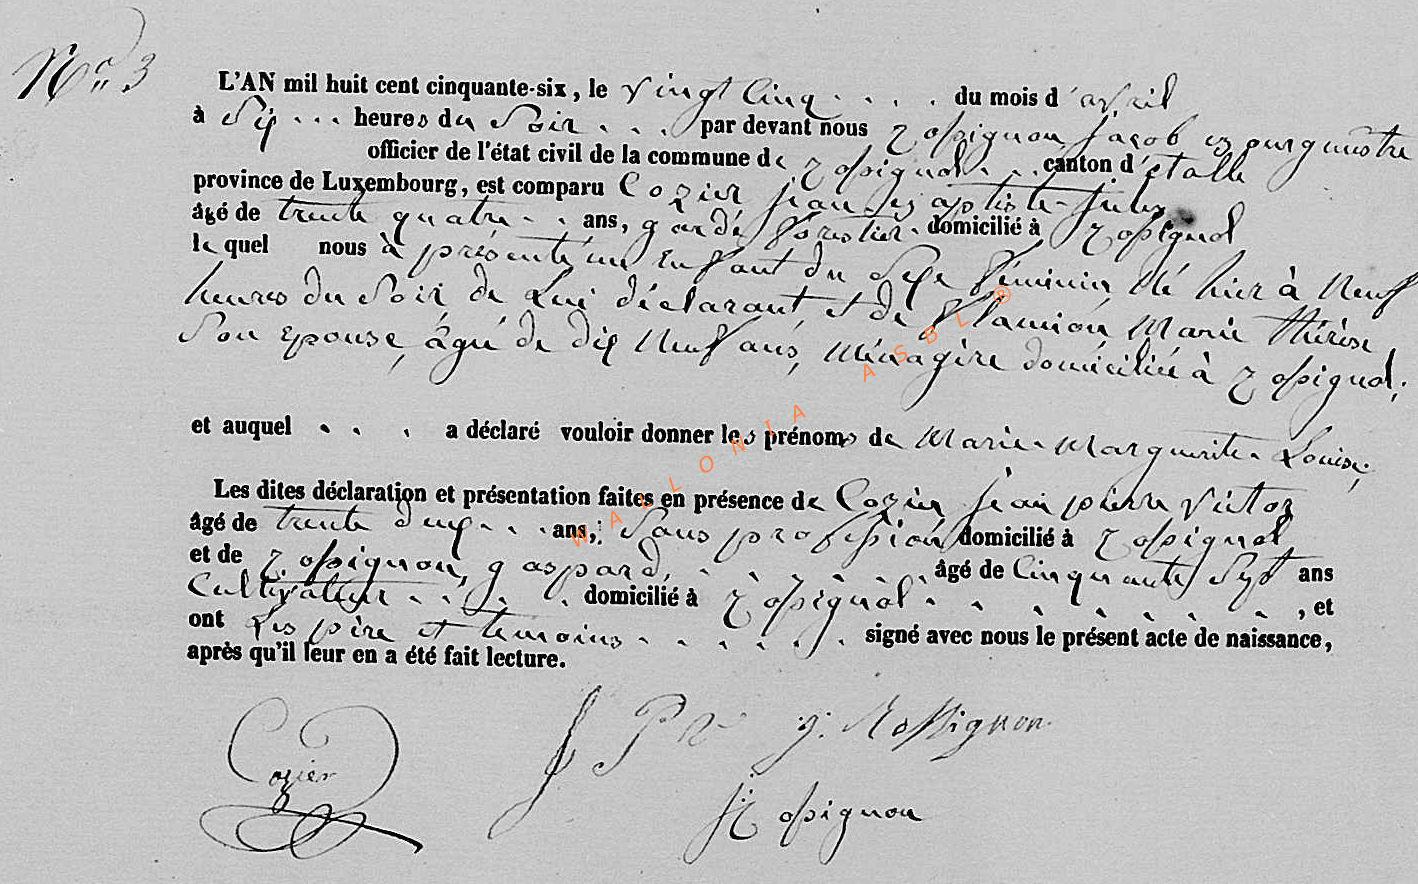 N.º 3
L'AN mil huit cent cinquante-six, le vingt Cinq .... du mois d'avril
à Six ... heures du Soir ... par devant nous Rossignon Jacob Bourgmestre
officier de l'état civil de la commune de Rossignol .. canton d'étalle
province de Luxembourg, est comparu Cozier jean Baptiste jules
âgé de trente quatre .. ans, garde forestier. domicilié à Rossignol
lequel nous à présenté un Enfant du Sexe féminin, Né hier à Neuf
heures du Soir de Lui déclarant et de Flamion Marie thérèse
Son Epouse, âgé de dix Neuf ans, Ménagère domiciliée à Rossignol;
et auquel ... a déclaré vouloir donner les prénoms de Marie-Marguerite-Louise;
Les dites déclaration et présentation faites en présence de Cozier jean pierre victor
âgé de trente deux ... ans, Sans profession domicilié à Rossignol
et de Rossignon, gaspard, ...... âgé de Cinquante Sept ans
Cultivateur ..... domicilié à Rossignol ......., et
ont Les père et temoins ...... signé avec nous le présent acte de naissance,
après qu'il leur en a été fait lecture.
WALLONIA ASBL ®
Cozier
g. Rossignon
J Rossignon